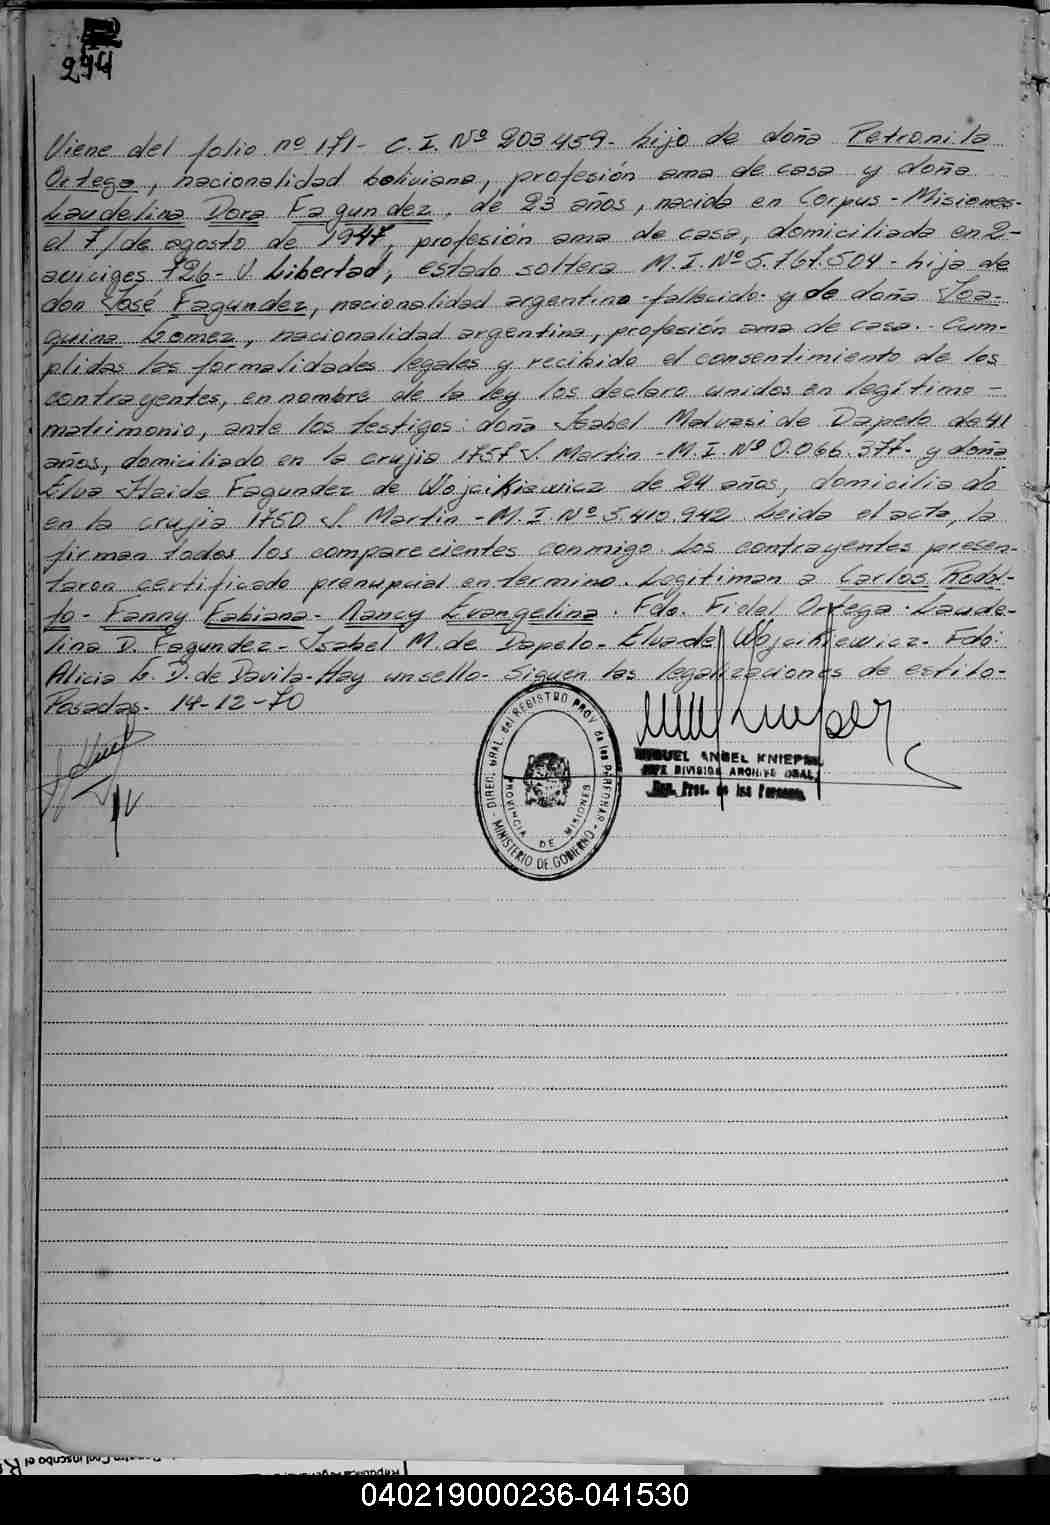 294
Viene del folio nº 171- C.I. Nº 203.459- hijo de doña Petronila
Ortega, nacionalidad boliviana, profesión ama de casa y doña
Laudelina Dora Fagundez, de 23 años, nacida en Corpus-Misiones-
el 7/de agosto de 1947, profesión ama de casa, domiciliada en
726- V. Libertad, estado soltera M.I. Nº 5.767.504- hija de
don José Fagundez, nacionalidad argentino-fallecido- y de doña Joa-
quina Gomez, nacionalidad argentina, profesión ama de casa.- Cum-
plidas las formalidades legales y recibido el consentimiento de los
contrayentes, en nombre de la ley los declaro unidos en legítimo-
matrimonio, ante los testigos: doña Isabel Malvasi de Dapeto de 41
años, domiciliado en la crujia 1757 S. Martin-M.I. Nº 0.066.377- y doña
Elva Haide Fagundez de Wojcikiewicz de 24 años, domiciliado
en la crujia 1750 S. Martin-M.I. Nº 5.410.942 Leida el acta, la
firman todos los comparecientes conmigo. Los contrayentes presen-
taron certificado prenupcial en termino. Legitiman a Carlos Rodol-
fo- Fanny Fabiana- Nancy Evangelina. Fdo. Fidel Ortega. Laude-
lina D. Fagundez- Isabel M. de Dapeto- Elva de Wojcikiewicz- Fdo:
Alicia G. D. de Davila-Hay un sello- Siguen las legalizaciones de estilo-
Posadas- 14-12-70
DIREC. GRAL. del REGISTRO PROV. de las PERSONAS
PROVINCIA DE MISIONES
MINISTERIO DE GOBIERNO
MIGUEL ANGEL KNIEPER
JEFE DIVISION ARCHIVO GRAL.
Reg. Prov. de las Personas
040219000236-041530